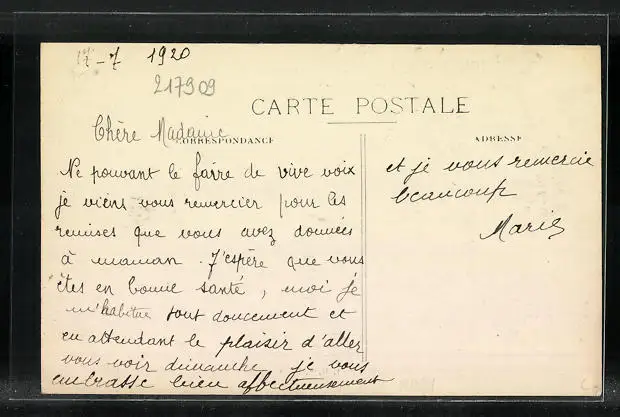 17-7 1920
217909
CARTE POSTALE
Chère Madame
CORRESPONDANCE
ADRESSE
Ne pouvant le faire de vive voix
je viens vous remercier pour les
remises que vous avez données
à maman. J'espère que vous
êtes en bonne santé, moi je
m'habitue tout doucement et
en attendant le plaisir d'aller
vous voir dimanche, je vous
embrasse bien affectueusement
et je vous remercie
beaucoup
Marie